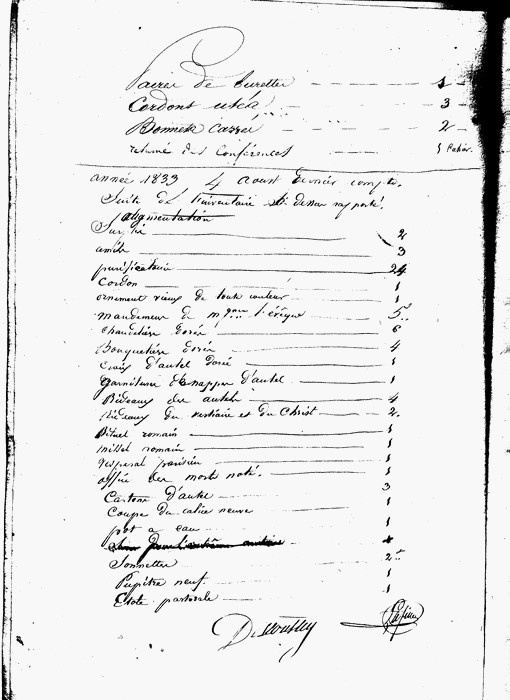 Paires de burettes 1
Cordons usés 3
Bonnets carrés 2
résumé des conférences 1 Cahier
année 1833 4 avant dernier compte.
Suite de l'inventaire ci dessus rapporté.
augmentation
Surplis 2
amicts 3
purificatoire 24
Cordon 1
ornement vieux de toute couleur 1
mandement de mgneur l'évêque 5
chandeliers dorés 6
Bouquetiers dorés 4
Croix d'autel dorée 1
garniture de nappes d'autel 1
Rideaux des autels 4
Rideaux du vestiaire et du Christ 2
Rituel romain 1
missel romain 1
vesperal parisien 1
office des morts noté. 1
Cartons d'autel 3
Coupe du calice neuve 1
pot a eau 1
Sonnettes 2
Pupitre neuf 1
Etole pastorale 1